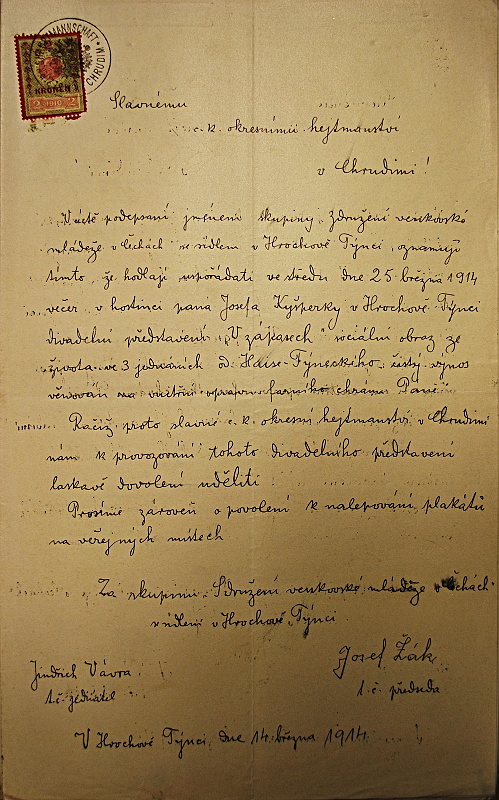 MANNSCHAFT * CHRUDIM
KRONEN
2 1910 2
Slavnému
c. k. okresnímu hejtmanství
v Chrudimi!
V úctě podepsaní jménem skupiny „Združení venkovské
mládeže v Čechách se sídlem v Hrochově Týnci, oznamují
tímto, že hodlají uspořádati ve středu dne 25. března 1914
večer v hostinci pana Josefa Kyšperky v Hrochově-Týnci
divadelní představení „V zápasech" sociální obraz ze
života ve 3 jednáních od Haise-Týneckého; čistý výnos
věnován na vnitřní opravu farního chrámu Páně.
Račiž proto slavné c. k. okresní hejtmanství v Chrudimi
nám k provozování tohoto divadelního představení
laskavě dovolení uděliti.
Prosíme zároveň o povolení k nalepování plakátů
na veřejných místech
Za skupinu: Sdružení venkovské mládeže v Čechách
se sídlem v Hrochově Týnci.
Jindrich Vávra
t. č. jednatel
Josef Žák
t. č. předseda
V Hrochově Týnci, dne 14. března 1914.